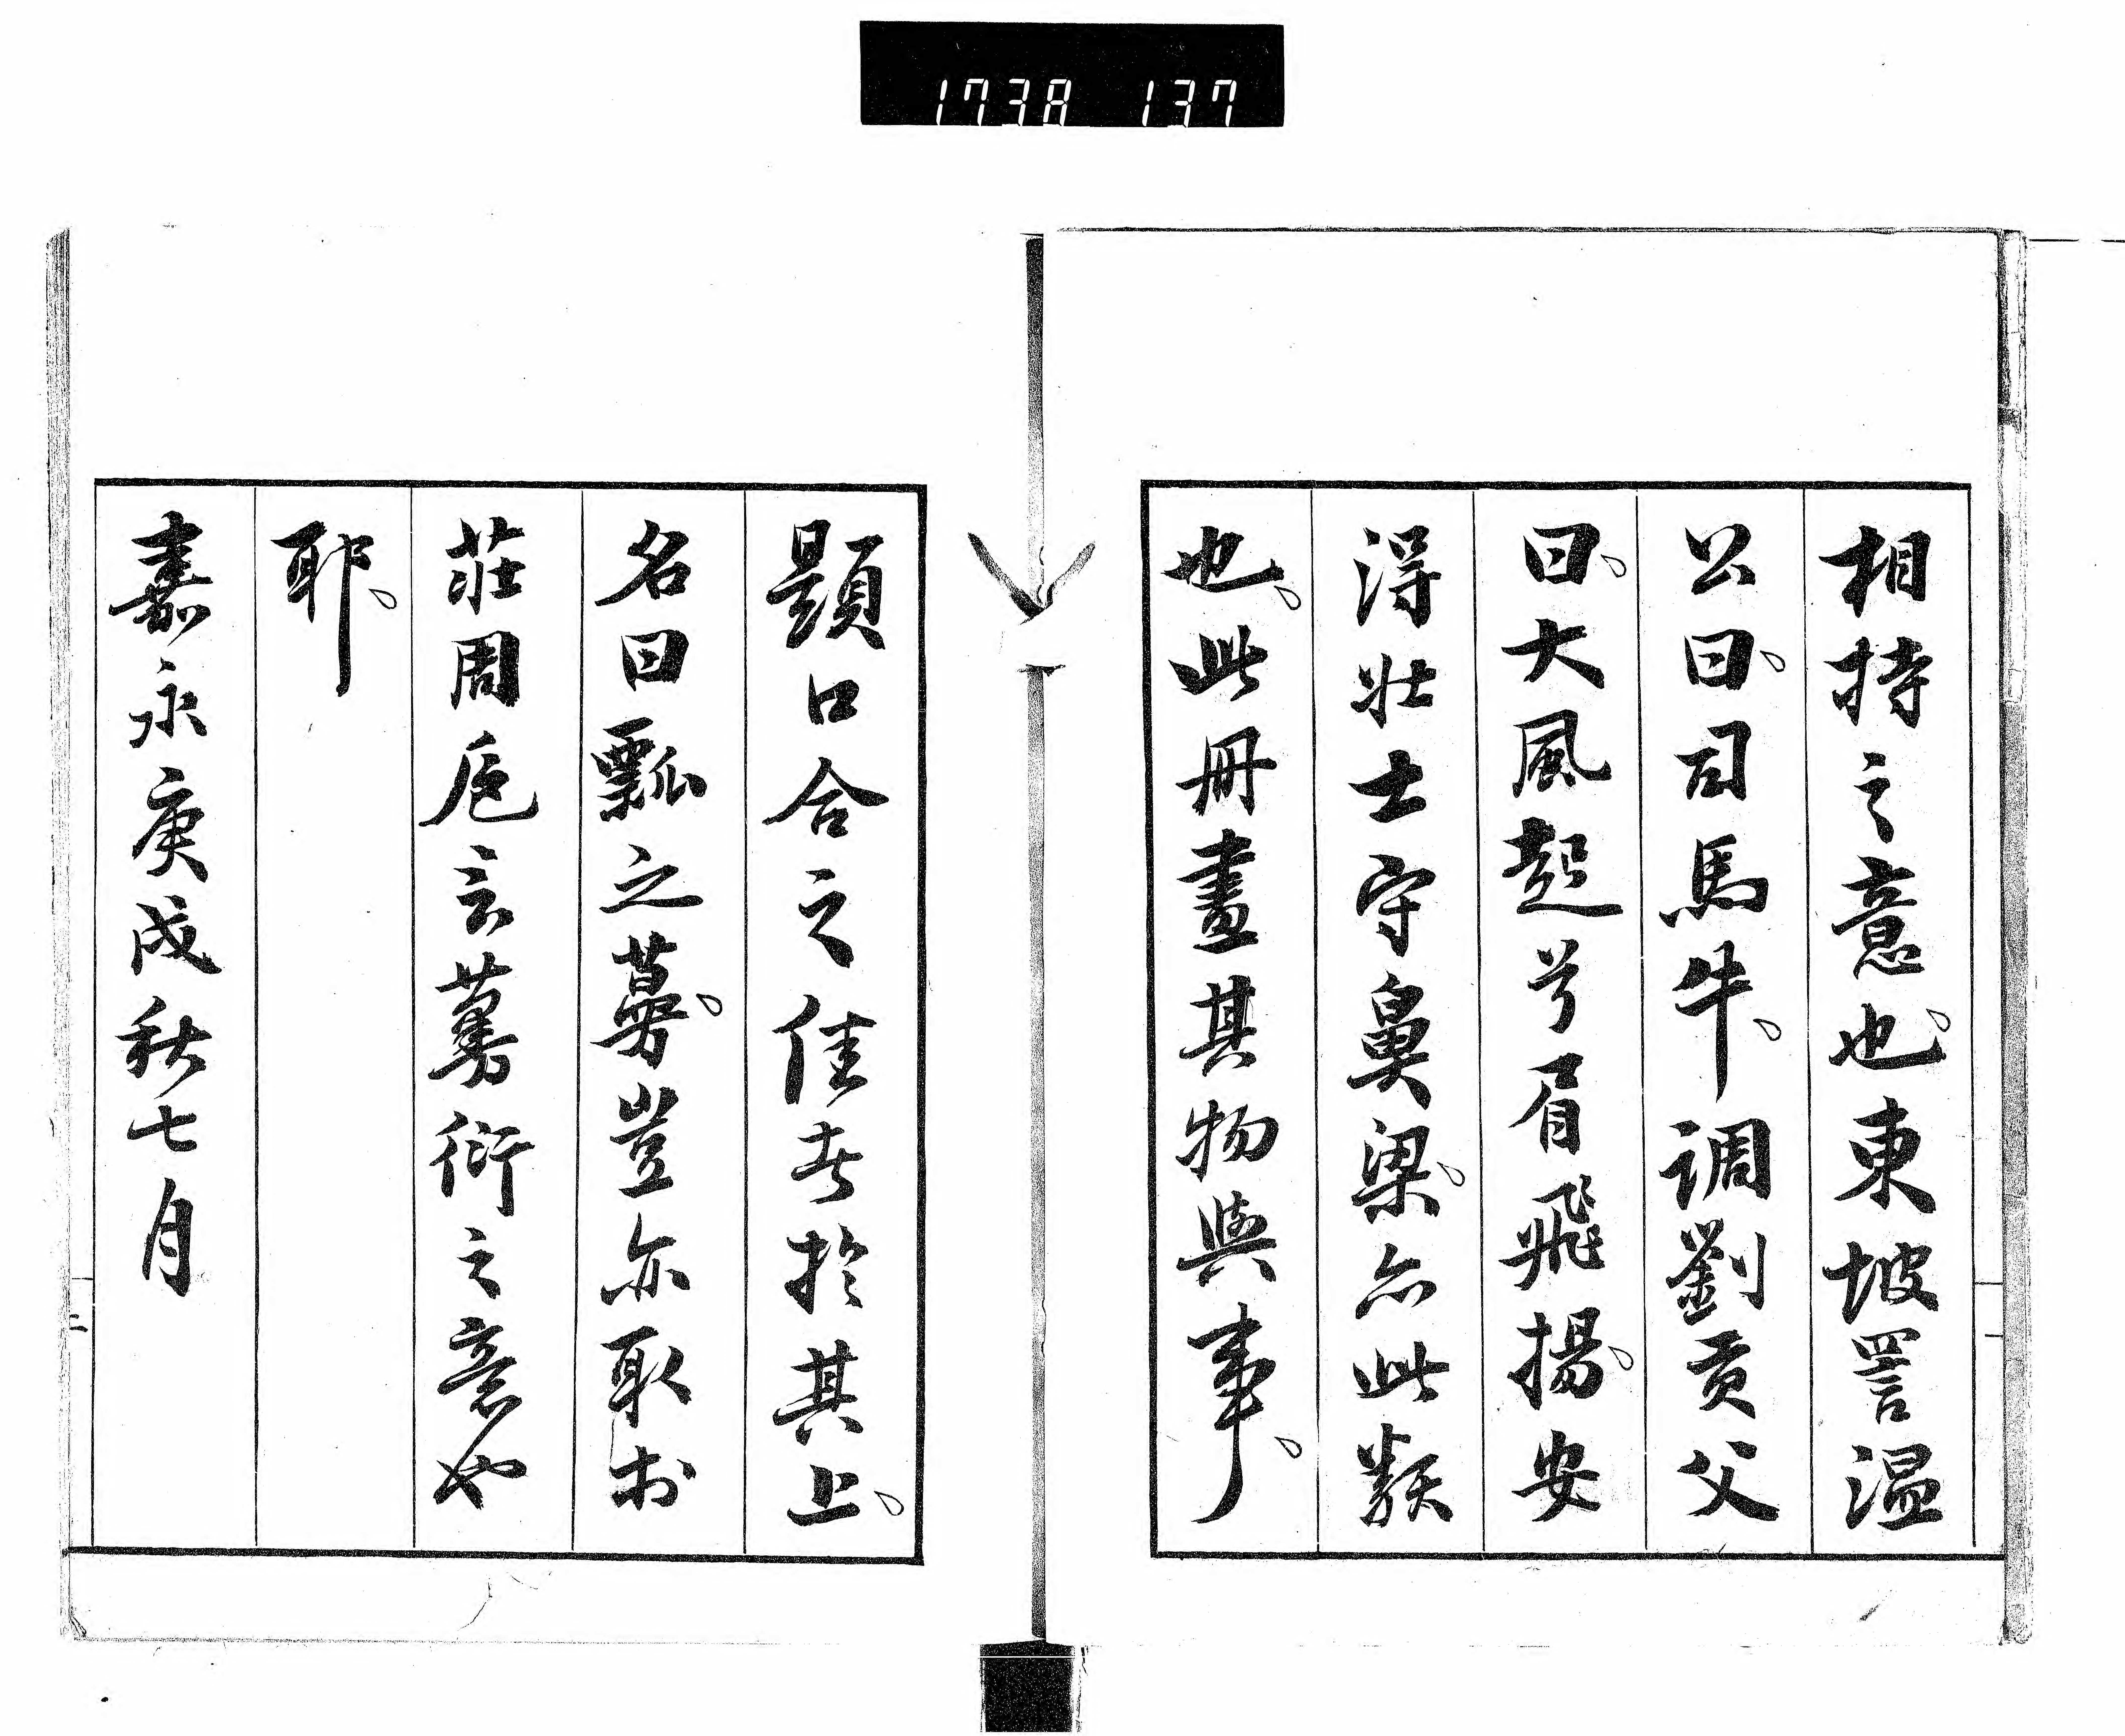 1738 137
相持之意也東坡詈温
公曰司馬牛調劉貢父
曰大風起兮眉飛揚安
得壮士守鼻梁亦此類
也此冊畫其物與事
題口合之佳者於其上
名曰瓢之蔓豈亦取於
莊周卮言蔓衍之意也
耶
嘉永庚戌秋七月
二